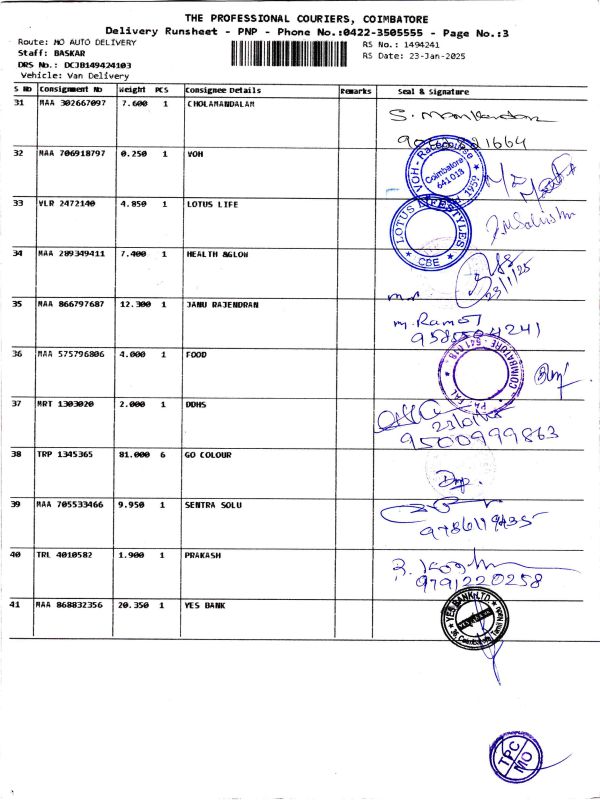 THE PROFESSIONAL COURIERS, COIMBATORE
Delivery Runsheet - PNP - Phone No.:0422-3505555 - Page No.:3
Route: MO AUTO DELIVERY
RS No.: 1494241
Staff: BASKAR
RS Date: 23-Jan-2025
DRS No.: DCJB149424103
Vehicle: Van Delivery
S No Consignment No Weight PCS Consignee Details Remarks Seal & Signature
31 MAA 302667097 7.600 1 CHOLAMANDALAM
32 MAA 706918797 0.250 1 VOH
VOH - Racecourse Coimbatore 641018
33 VLR 2472140 4.850 1 LOTUS LIFE
LOTUS LIFESTYLES CBE
34 MAA 289349411 7.400 1 HEALTH &GLOW
23/1/25
35 MAA 866797687 12.300 1 JANU RAJENDRAN
36 MAA 575796806 4.000 1 FOOD
COIMBATORE - 641 018
37 MRT 1303020 2.000 1 DDHS
9500999863
38 TRP 1345365 81.000 6 GO COLOUR
39 MAA 705533466 9.950 1 SENTRA SOLU
40 TRL 4010582 1.900 1 PRAKASH
9791220258
41 MAA 868832356 20.350 1 YES BANK
YES BANK LTD
TPC
MO